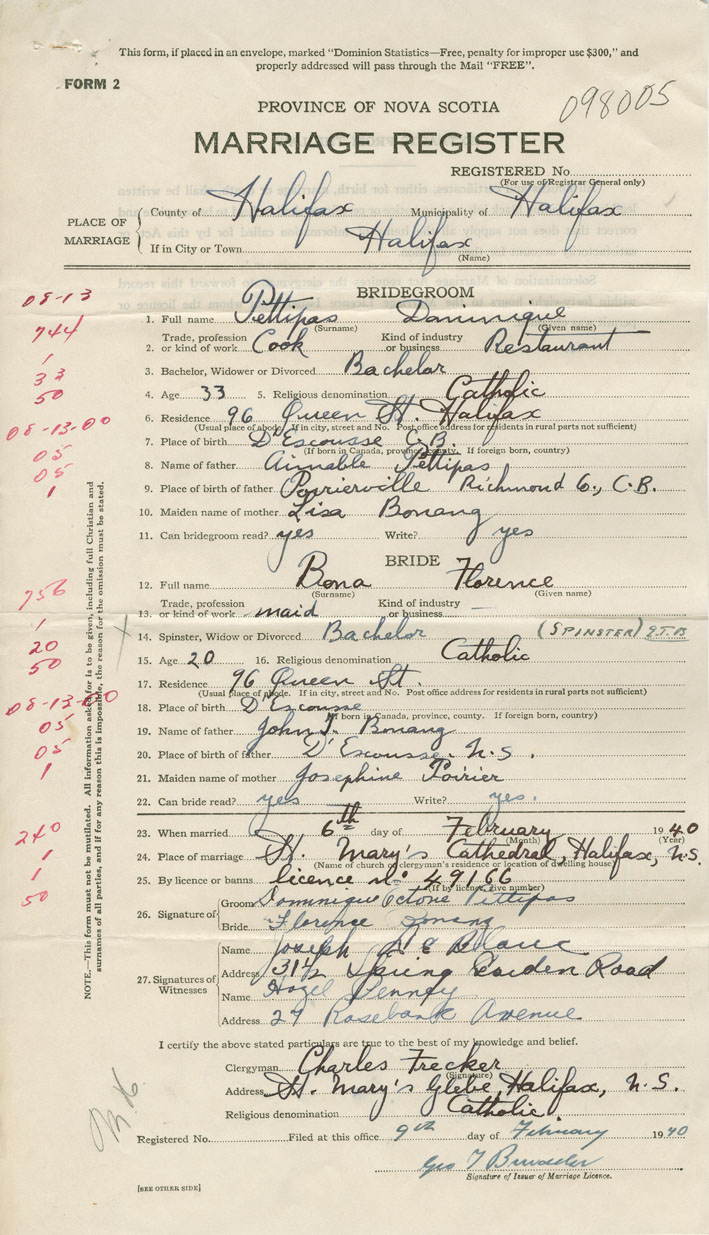 This form, if placed in an envelope, marked "Dominion Statistics—Free, penalty for improper use $300," and
properly addressed will pass through the Mail "FREE".
FORM 2
098005
PROVINCE OF NOVA SCOTIA
MARRIAGE REGISTER
REGISTERED No.
(For use of Registrar General only)
PLACE OF MARRIAGE
County of Halifax Municipality of Halifax
If in City or Town Halifax
(Name)
08-13
BRIDEGROOM
1. Full name Pettipas Dominique
(Surname) (Given name)
744
2. Trade, profession or kind of work Cook Kind of industry or business Restaurant
1
3. Bachelor, Widower or Divorced Bachelor
33
4. Age 33 5. Religious denomination Catholic
50
6. Residence 96 Queen St. Halifax
(Usual place of abode. If in city, street and No. Post office address for residents in rural parts not sufficient)
08-13-00
7. Place of birth D'Escousse C.B.
(If born in Canada, province, county. If foreign born, country)
05
8. Name of father Aimable Pettipas
05
9. Place of birth of father Poirierville Richmond Co., C.B.
1
10. Maiden name of mother Lisa Bonang
11. Can bridegroom read? yes Write? yes
BRIDE
12. Full name Bona Florence
(Surname) (Given name)
756
13. Trade, profession or kind of work maid Kind of industry or business —
1
14. Spinster, Widow or Divorced Bachelor (SPINSTER)
20
15. Age 20 16. Religious denomination Catholic
50
17. Residence 96 Queen St.
(Usual place of abode. If in city, street and No. Post office address for residents in rural parts not sufficient)
08-13-00
18. Place of birth D'Escousse
(If born in Canada, province, county. If foreign born, country)
05
19. Name of father John J. Bonang
05
20. Place of birth of father D'Escousse. N.S.
1
21. Maiden name of mother Josephine Poirier
22. Can bride read? yes Write? yes.
240
23. When married 6th day of February 1940
(Month) (Year)
1
24. Place of marriage St. Mary's Cathedral, Halifax, N.S.
(Name of church or clergyman's residence or location of dwelling house)
1
25. By licence or banns licence No 49166
(If by licence give number)
50
26. Signature of
Groom Dominique Pettipas
Bride Florence Bonang
27. Signatures of Witnesses
Name Joseph
Address 31½ Spring Garden Road
Name Hazel Penney
Address 27 Rosebank Avenue
NOTE.—This form must not be mutilated. All information asked for is to be given, including full Christian and
surnames of all parties, and if for any reason this is impossible, the reason for the omission must be stated.
I certify the above stated particulars are true to the best of my knowledge and belief.
Clergyman Charles Frecker
(Signature)
Address St. Mary's Glebe, Halifax, N.S.
Religious denomination Catholic.
Registered No. Filed at this office 9th day of February 1940
Geo
Signature of Issuer of Marriage Licence.
[SEE OTHER SIDE]